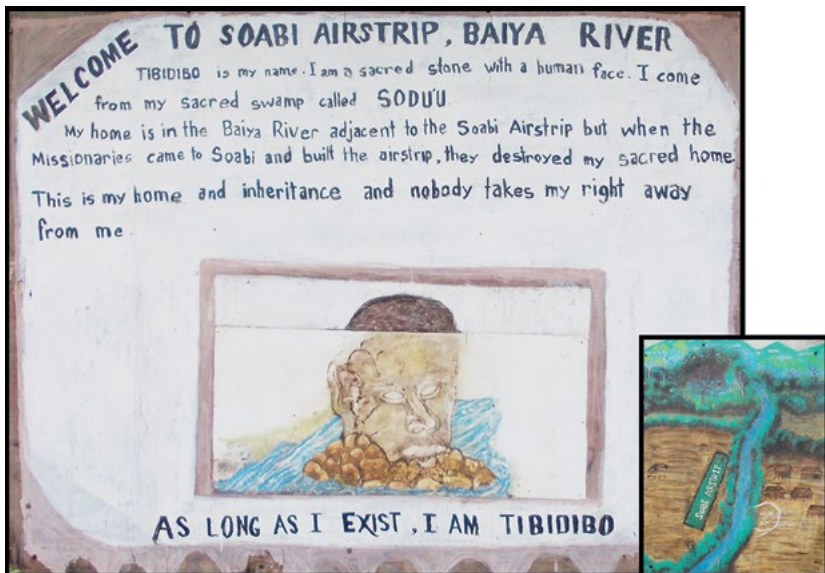 WELCOME TO SOABI AIRSTRIP, BAIYA RIVER
TIBIDIBO is my name. I am a sacred stone with a human face. I come
from my sacred swamp called SODU'U
My home is in the Baiya River adjacent to the Soabi Airstrip but when the
Missionaries came to Soabi and built the airstrip, they destroyed my sacred home.
This is my home and inheritance and nobody takes my right away
from me
AS LONG AS I EXIST, I AM TIBIDIBO
SOABI AIRSTRIP